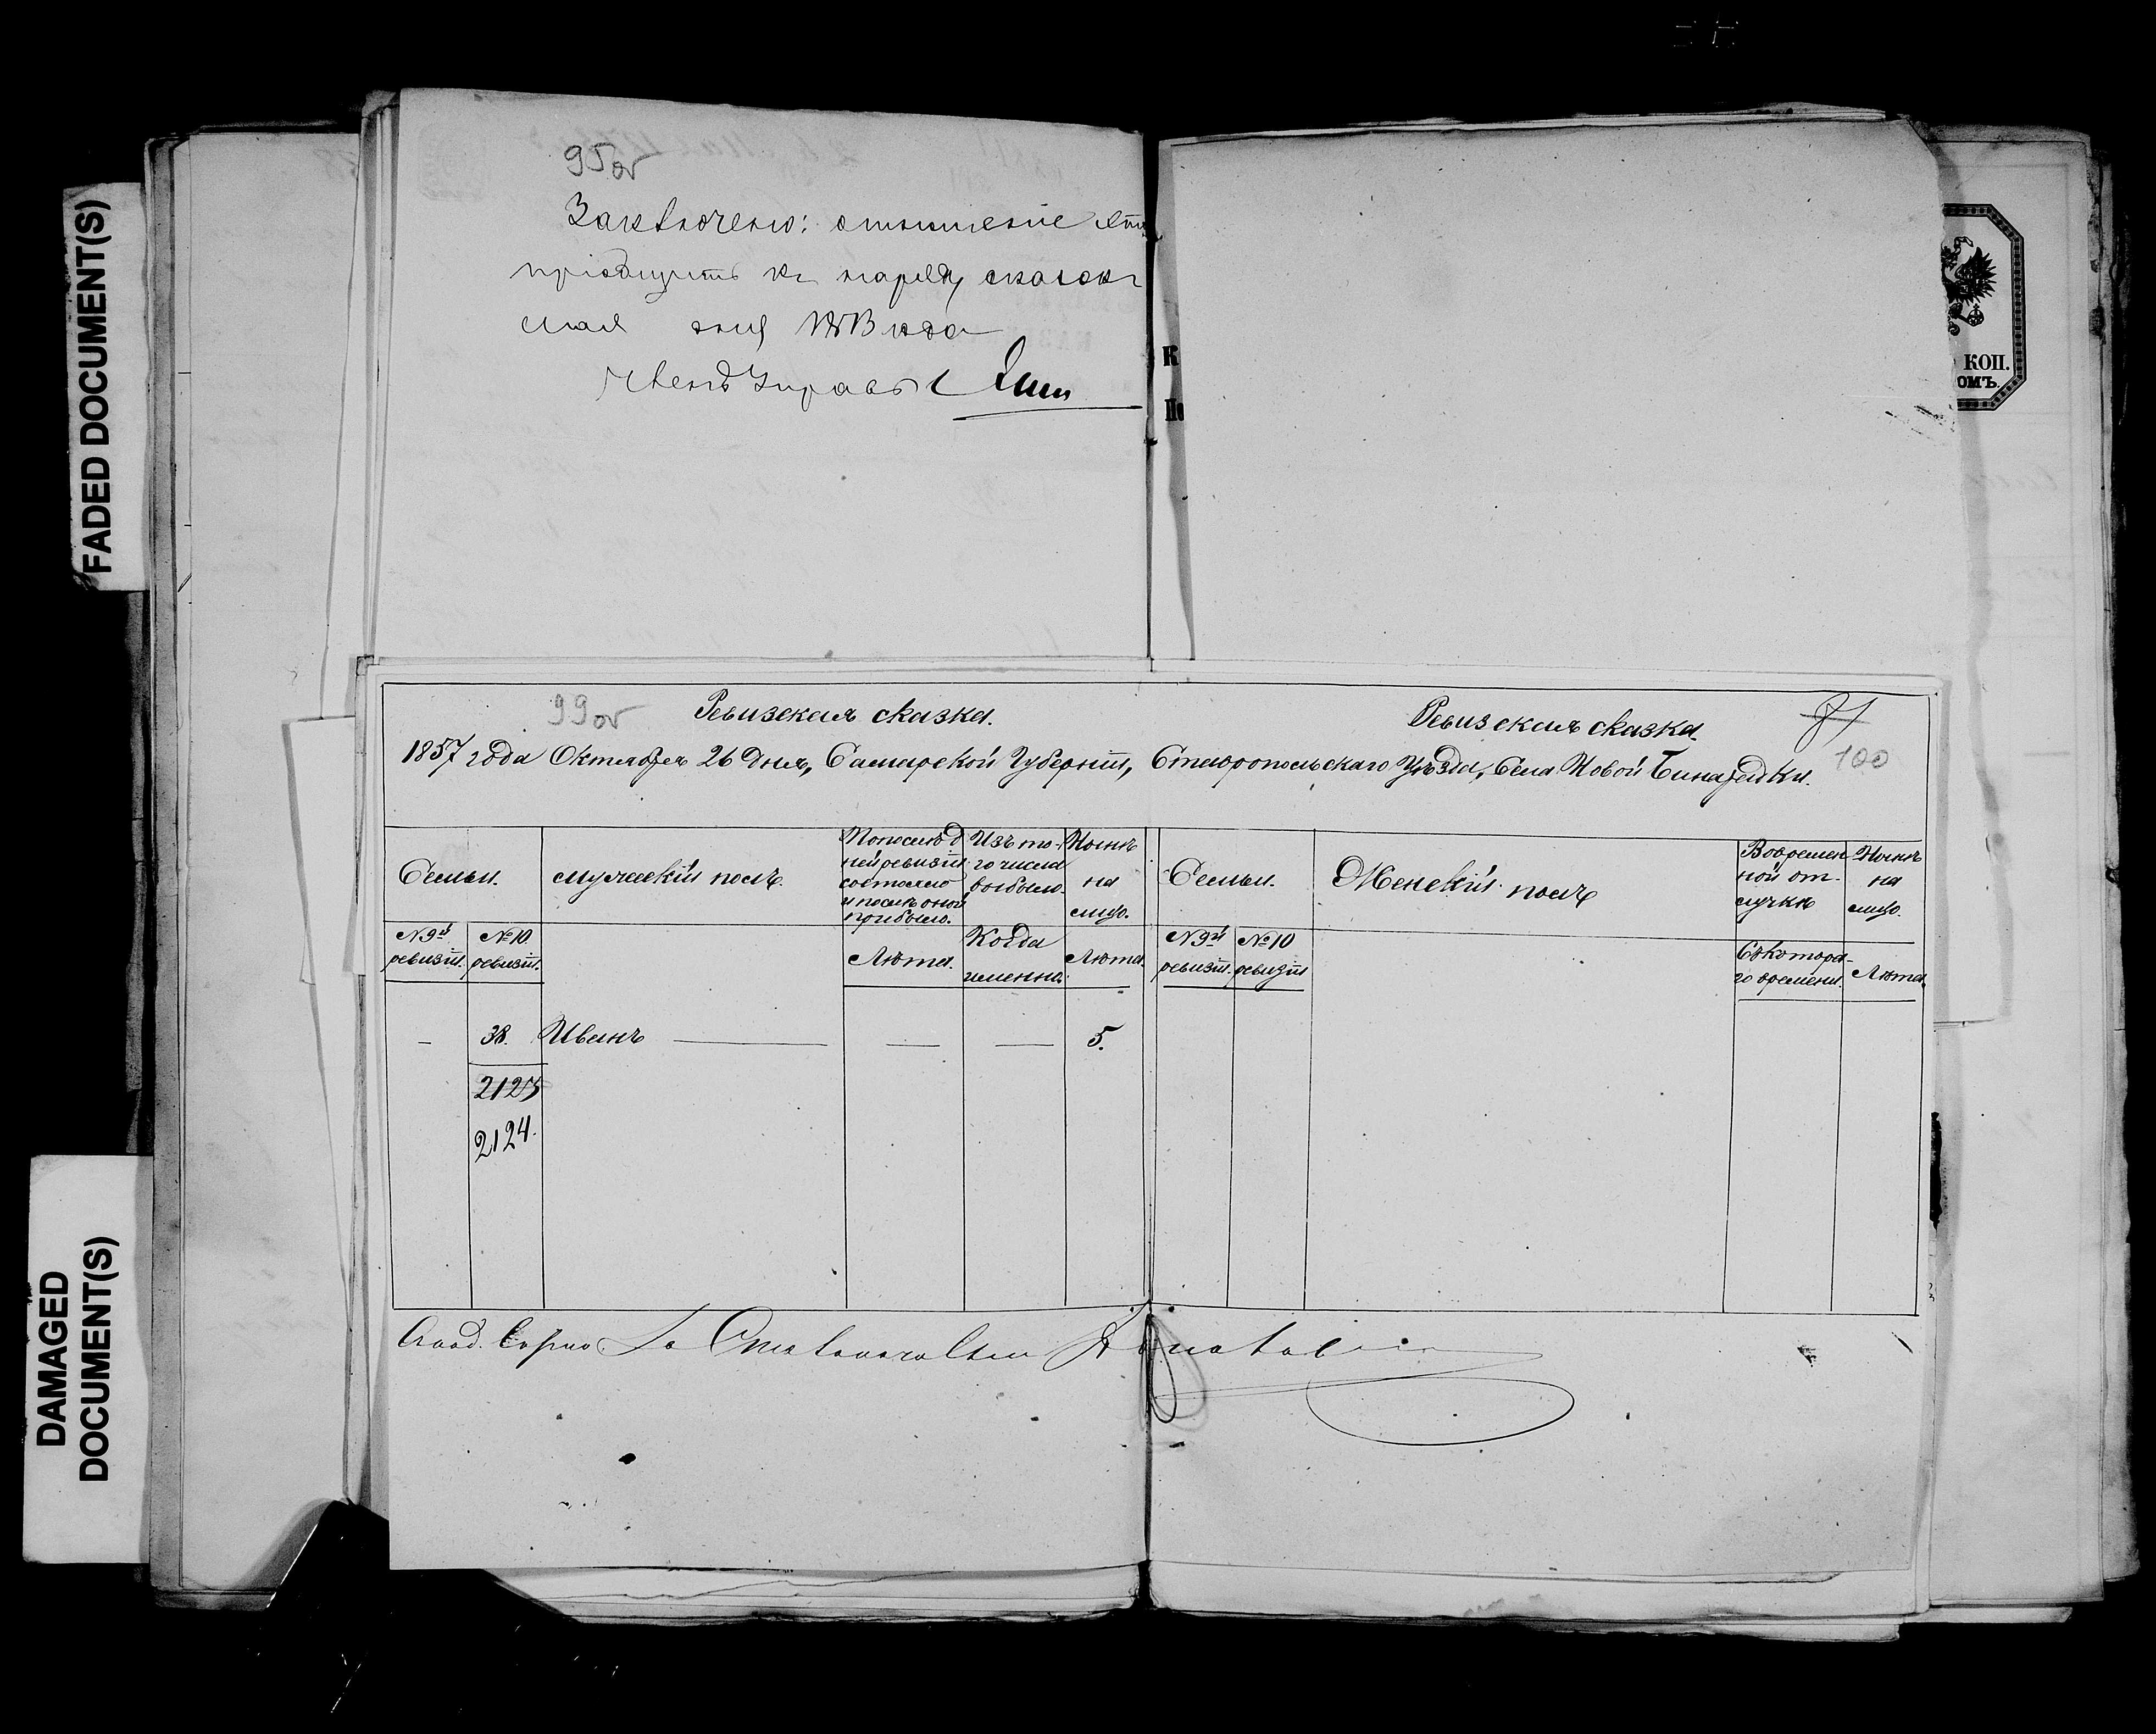 FADED DOCUMENT(S)
DAMAGED
DOCUMENT(S)
95об
Заключено: отношеніе это
пріобщить къ наряду сказокъ
Членъ Управы
К
По
КОП.
ОМЪ.
99об
Ревизская сказка.
Ревизская сказка.
81
100
1857 года Октября 26 дня, Самарской Губерніи, Ставропольскаго Уѣзда, Села Новой Бинарадки.
Семьи.
мужескій полъ.
По послѣд
ней ревизіи
состояло
и послѣ оной
прибыло.
Изъ то-
го числа
выбыло.
Нынѣ
на
лицо.
Семьи.
Женскій полъ
Во времен
ной от-
лучкѣ
Нынѣ
на
лицо.
№ 9й
ревизіи.
№ 10.
ревизіи.
Лѣта.
Когда
именно.
Лѣта.
№ 9й
ревизіи.
№ 10
ревизіи
Съ котора-
го времени.
Лѣта.
–
38.
Иванъ
5.
2123
2124.